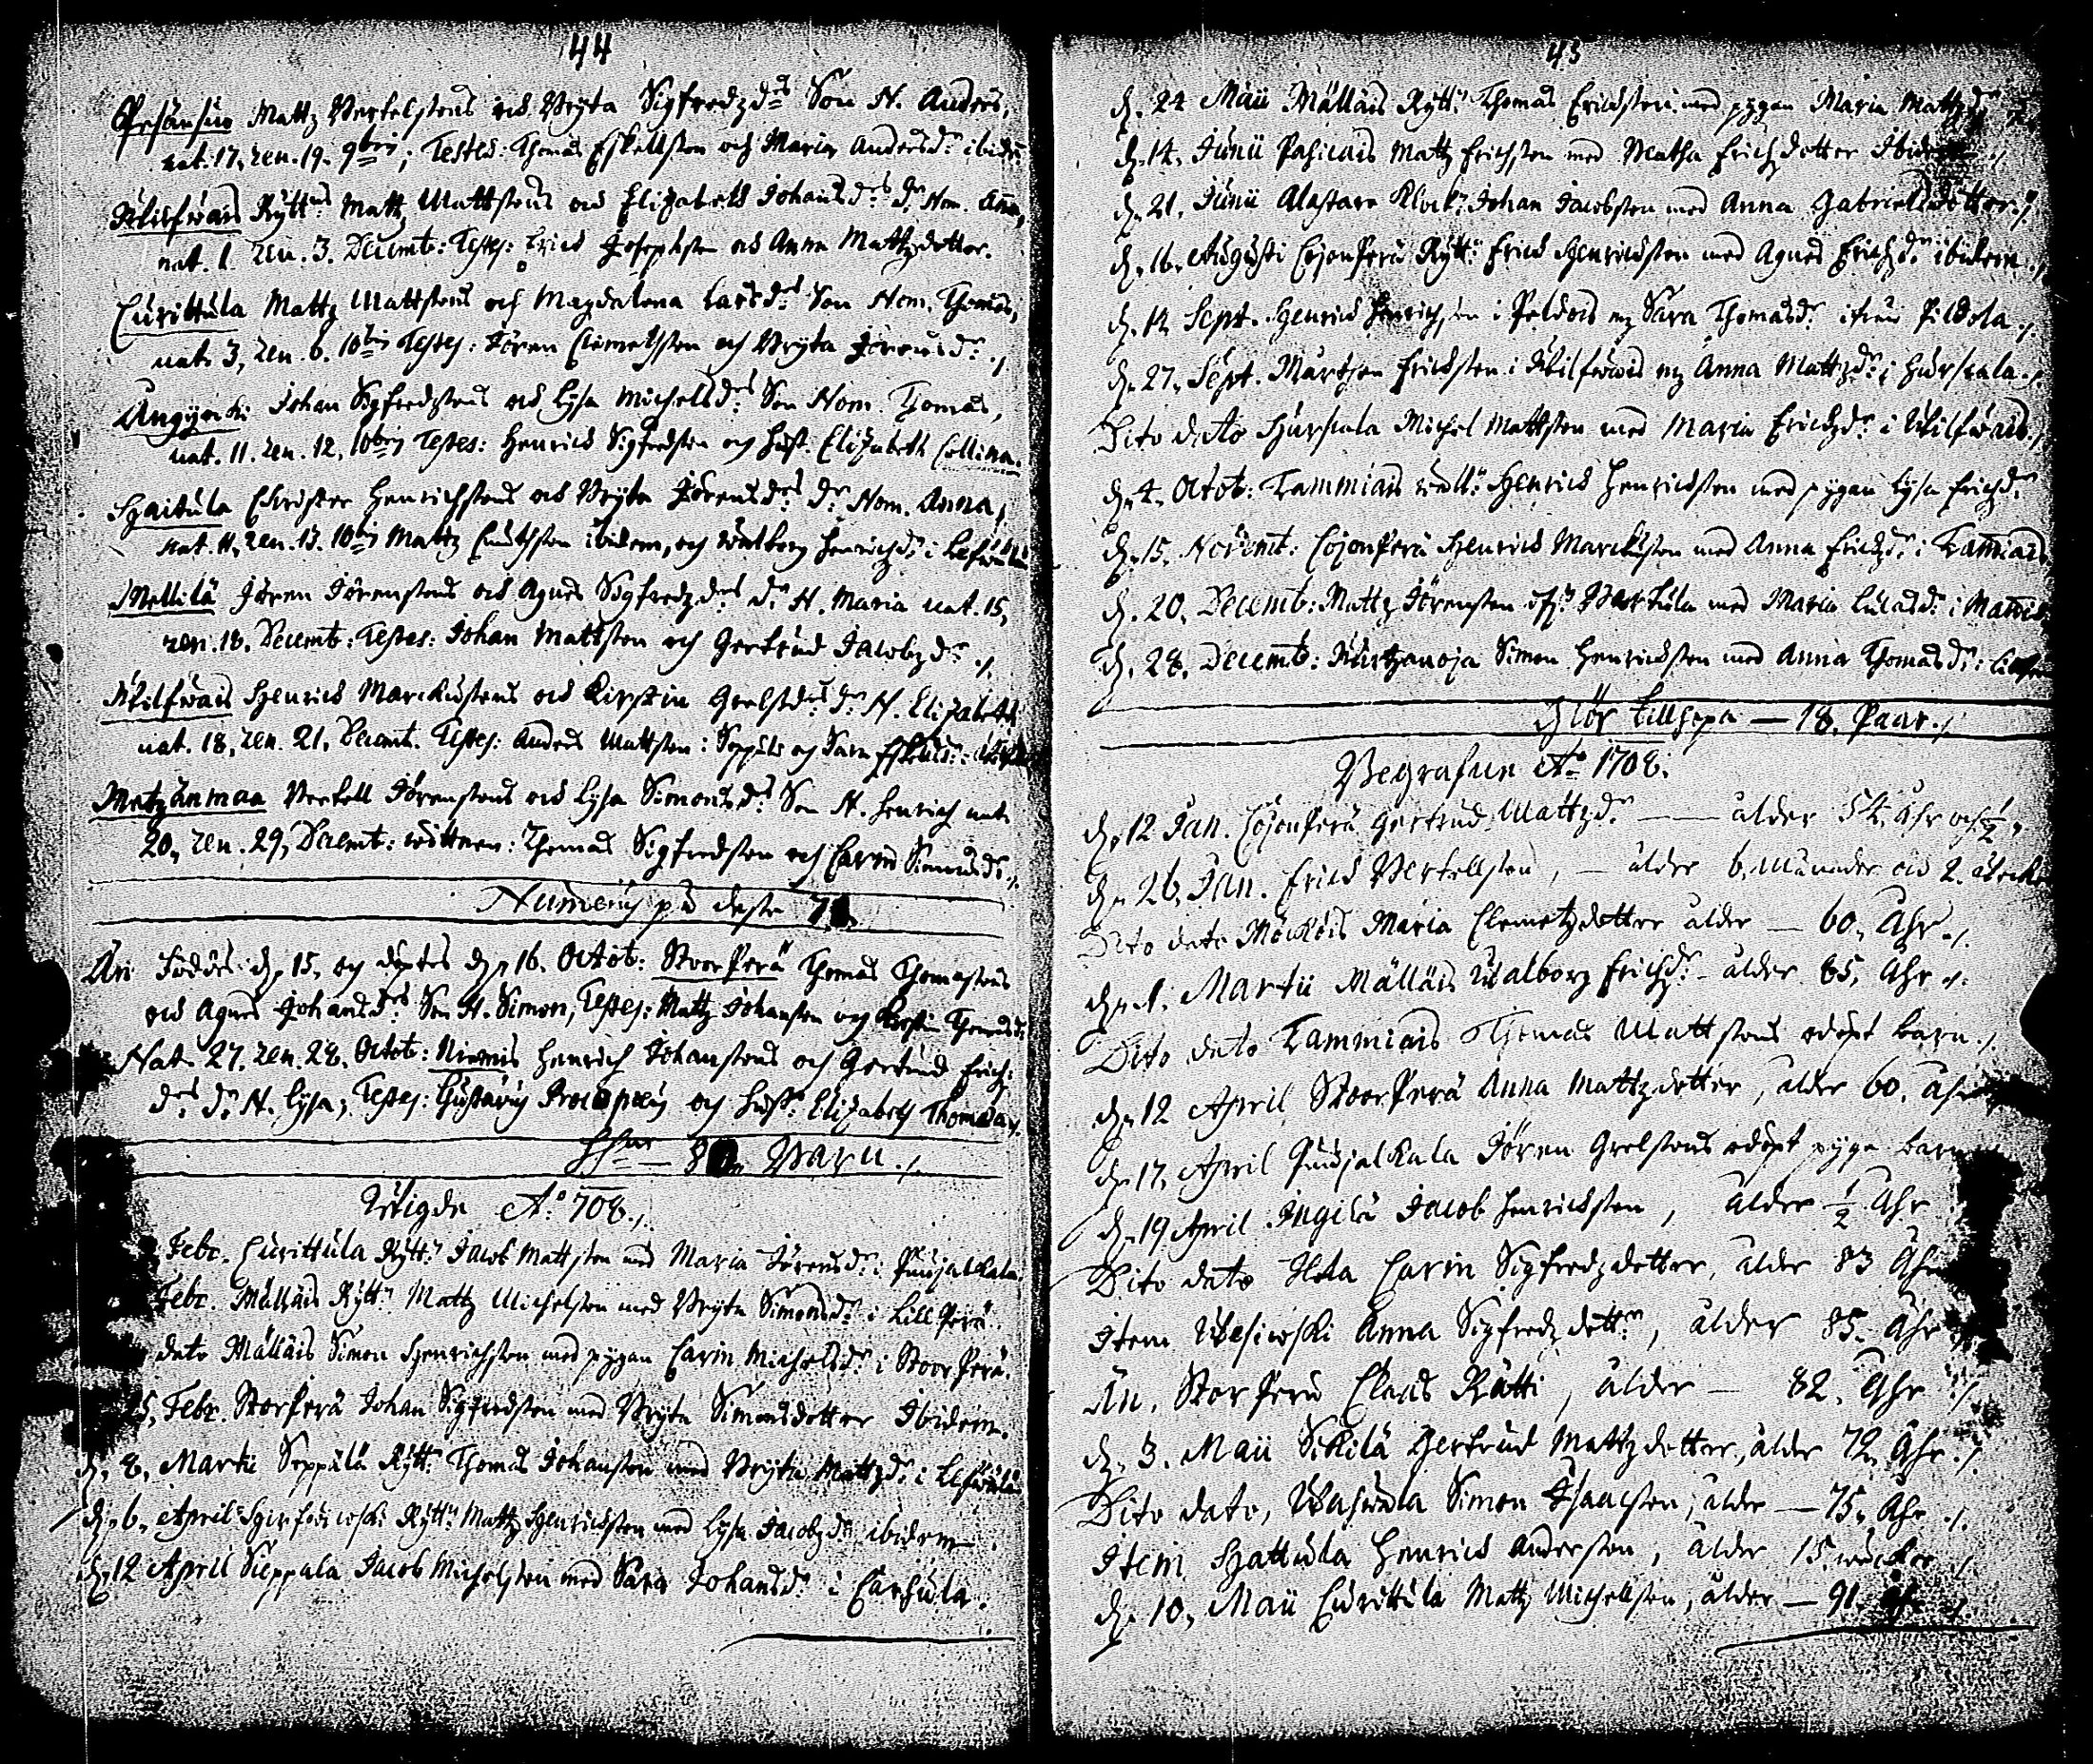 44
Mattz Bertelssons och Bryta Sigfredzd.rs Son N. Anders,
nat. 17, ren. 19. 9bris; Testes: Thomas Eskellsson och Maria Andersd.r ibid.
Wilfwais Rytt. Matt Mattssons och Elizabeth Johansd.rs d.r Nom. Anna,
nat. 1. ren. 3. Decemb: Testes: Erich Josephsson och Anna Mattzdotter.
Curittula Mattz Mattssons och Magdalena Larsd.rs Son Nom. Thomas,
nat. 3, ren. 6. 10bris Testes: Jören Clemetsson och Bryta Jörensd.r ./.
Johan Sigfredssons och Lysa Michelsd.rs Son Nom. Thomas,
nat. 11. ren. 12. 10bris Testes: Henrich Sigfredsson och Hust. Elizabeth Collina.
Christer Henrichssons och Bryta Jörensd.rs d.r Nom. Anna,
nat. 11, ren. 13. 10bris Mattz Knutsson ibidem, och Walborg Henrichd.r i
Mellilä Jören Jörenssons och Agnes Sigfredzd.rs d.r N. Maria nat. 15,
ren. 18. Decemb: Testes: Johan Mattsson och Gertrud Jacobzd.r ./.
Wilfwais Henrich Marckussons och Kirstin Grelsd.rs d.r N. Elizabeth
nat. 18, ren. 21. Decemt. Testes: Anders Mattsson i Seppälä och Sara Eskelsd.r
Metzänmaa Bertell Jörenssons och Lysa Simonsd.rs Son N. Henrich nat.
20, ren. 29, Decemt: wittnen: Thomas Sigfredsson och Carin Simonsd.r ./.
Numerus på desse
Än Föddes d. 15, och döptes d. 16. Octob: StoorPerä Thomas Thomassons
och Agnes Johansd.rs Son N. Simon, Testes: Mattz Johansson och Kirstin Thomasd.r
Nat. 27. ren. 28. Octob: Niemis Henrich Johanssons och Gertrud Erich-
d.rs d.r N. Lysa; Testes: Gustavus Procopæus och Hust. Elizabeth Thomæa ./.
Barn ./.
Wigde A:o 708.
Febr. Curittula Rytt. Jacob Mattsson med Maria Jörensd.r i Puujalkala.
Febr. Mälläis Rytt. Mattz Michelsson med Bryta Simonsd.r i LillPerä.
dato Mälläis Simon Henrichsson med pygan Carin Michelsd.r i StoorPerä.
15, Febr. StorPerä Johan Sigfredsson med Bryta Simonsdotter Ibidem.
d. 8, Martii Seppälä Rytt. Thomas Johansson med Bryta Mattzd.r i
d. 6, April Rytt. Mattz Henrichsson med Lysa Jacobzd.r ibidem
d. 12 April Sieppala Jacob Michelsson med Sara Johansd.r i Carhula.
45
d. 24 Maii Mälläis Rytt. Thomas Erichsson med pygan Maria Mattzd.r
d. 14. Junii Pahicais Mattz Erichsson med Matha Erichzdotter Ibidem
d. 21. Junii Alastaro Klock. Johan Jacobsson med Anna Gabrielsdotter ./.
d. 16. Augusti CojonPerä Rytt. Erich Henrichsson med Agnes Erichzd.r ibidem.
d. 14 Sept. Henrich Henrichsson i med Sara Thomasd.r ifrån
d. 27. Sept. Mårthen Erichsson i Wilfwais med Anna Mattzd.r i Hurskala.
Dito dato Hurskala Michel Mattsson med Maria Erichzd.r i Wilfwais ./.
d. 4. Octob: Tammiais Henrich Henrichsson med pygan Lysa Erichd.r
d. 15. Novemt: CojonPerä Henrich Marckusson med Anna Erichzd.r i Tammiais
d. 20. Decemt: Mattz Jörensson med Maria Lucasd.r i
d. 28. Decemt: Kurtzanoja Simon Henrichsson med Anna Thomasd.r i
Giör tillhopa — 18. Paar ./.
Begrafne A:o 1708.
d. 12 Jan. CojonPerä Gertrud Mattzd.r — ålder 54. Åhr och ½,
d. 26. Jan. Erich Bertellsson, — ålder 6. Månader och 2. Weckor
Dito dato Mäckois Maria Clemetzdotter ålder — 60. Åhr ./.
d. 1. Martii Mälläis Walborg Erichd.r — ålder 65. Åhr ./.
Dito dato Tammiais Thomas Mattssons odöpt barn ./.
d. 12 April StoorPerä Anna Mattzdotter, ålder 60. Åhr
d. 17. April Puujalkala Jören Grelssons odöpt pyge barn
d. 19 April Ingilä Jacob Henrichsson, ålder ½ Åhr
Dito dato Carin Sigfredzdotter, ålder 83 Åhr
Item Anna Sigfredzdott.r, ålder 85. Åhr
Än. StorPerä Claes Rätti, ålder — 82. Åhr ./.
d. 3. Maii Sikilä Gertrud Mattzdotter, ålder 72. Åhr ./.
Dito dato, Simon Isaacsson, ålder — 75. Åhr ./.
Item Hattula Henrich Andersson, ålder 15. weckor ./.
d. 10, Maii Curittula Mattz Michellsson, ålder — 91.